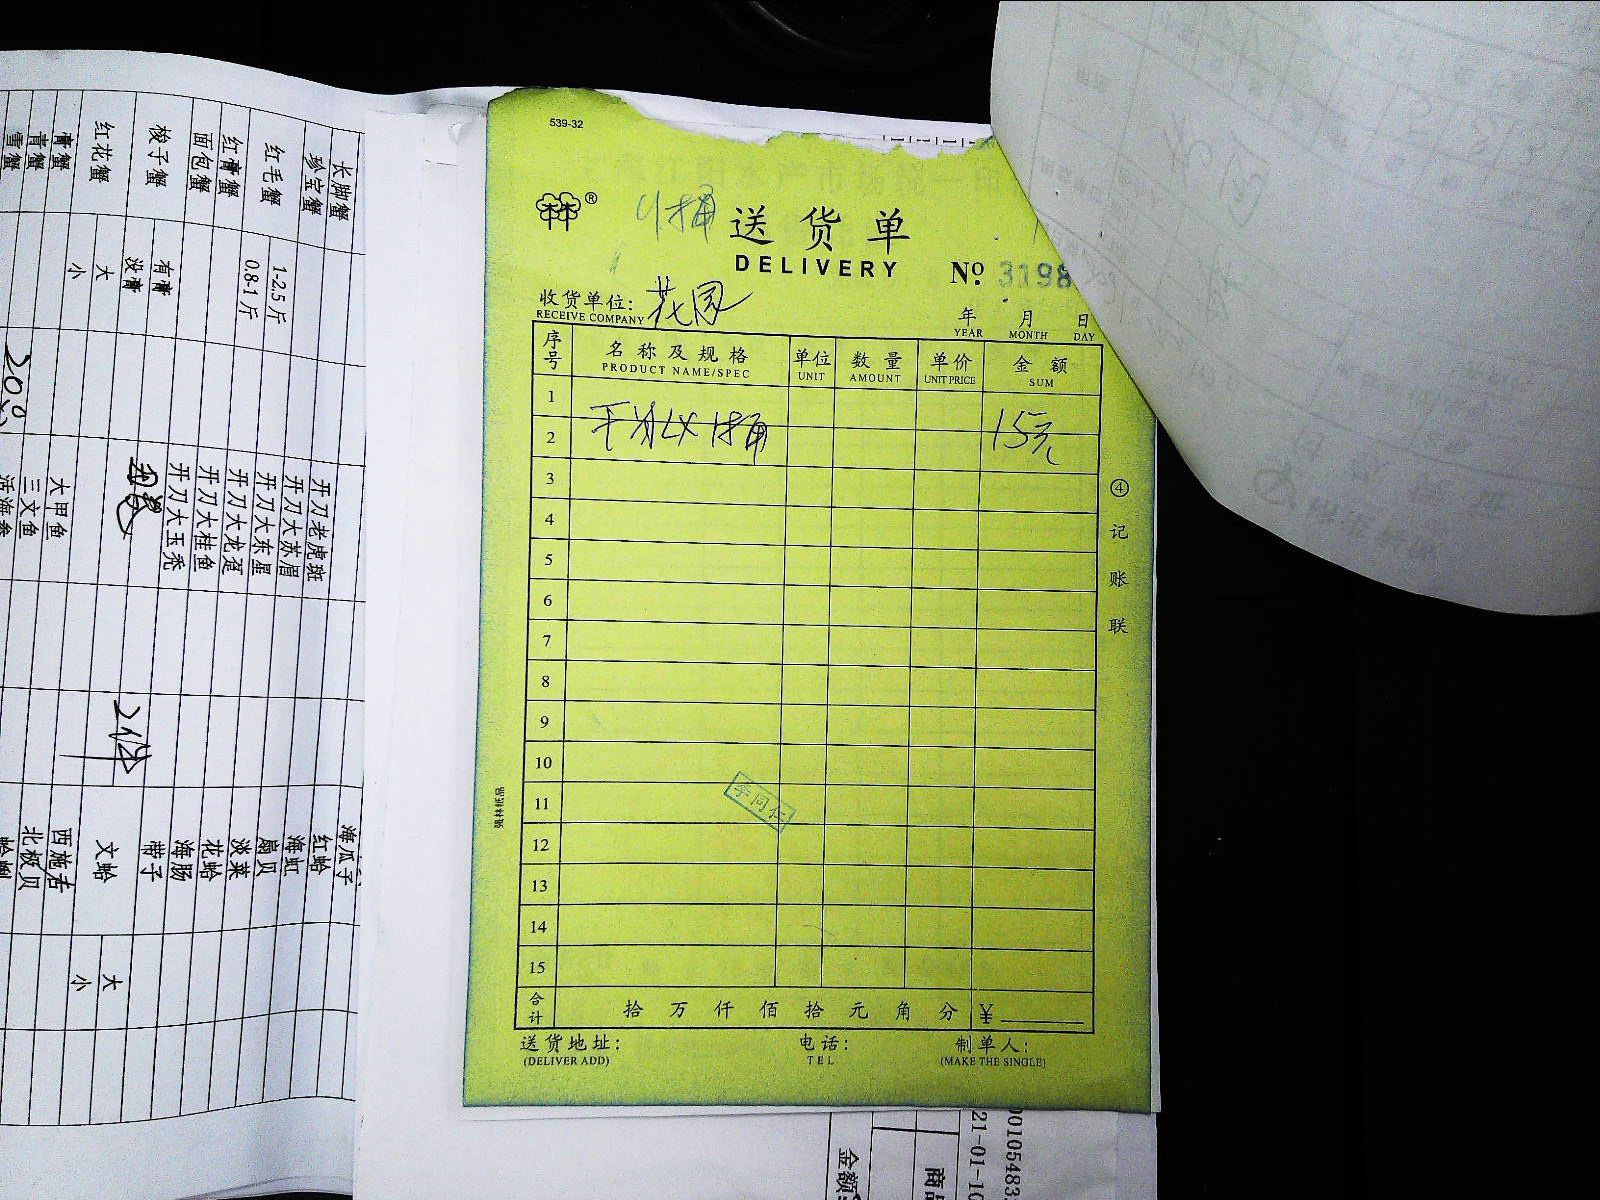 539-32
林®
送货单
DELIVERY
No. 3198
收货单位: 花园
RECEIVE COMPANY
年 月 日
YEAR MONTH DAY
序号 名称及规格 单位 数量 单价 金额
PRODUCT NAME/SPEC UNIT AMOUNT UNIT PRICE SUM
1
2
干冰 1桶 15元
3
4
5
6
7
8
9
10
11
12
13
14
15
李同仁
合计 拾 万 仟 佰 拾 元 角 分 ¥
送货地址: 电话: 制单人:
(DELIVER ADD) TEL (MAKE THE SINGLE)
④记账联
强林纸品
长脚蟹
珍宝蟹
红毛蟹 1-2.5斤
0.8-1斤
红膏蟹
面包蟹
梭子蟹 有膏
没膏
红花蟹 大
小
膏蟹
青蟹
雪蟹
开刀老虎斑
开刀大苏眉
开刀大东星
开刀大龙趸
开刀大桂鱼
开刀大玉秃
大甲鱼
三文鱼
活海参
海瓜子
红蛤
海虹
扇贝
淡菜
花蛤
海肠
带子
文蛤 大
小
西施舌
北极贝
00105483
21-01-10
商品
金额